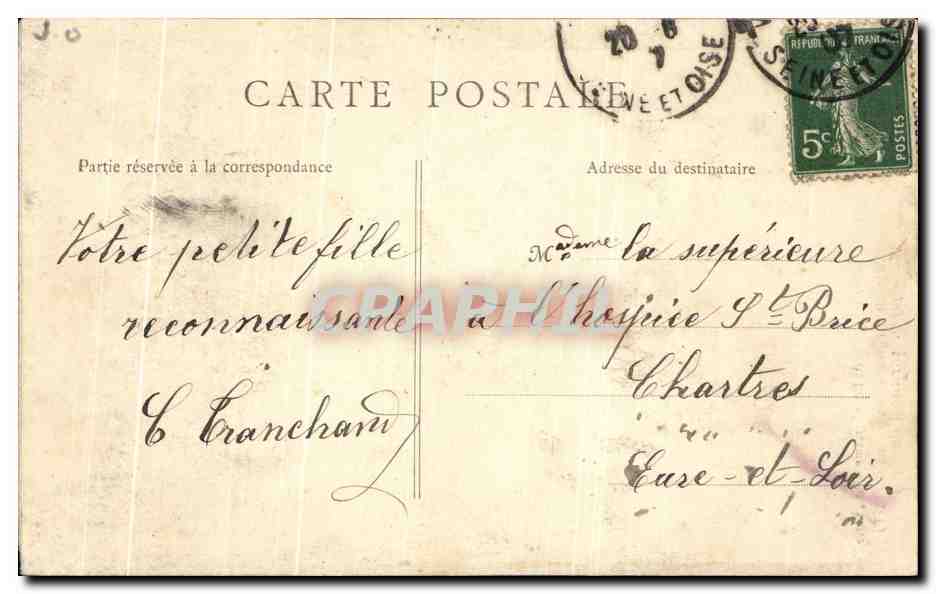 CARTE POSTALE
Partie réservée à la correspondance
Votre petite fille
reconnaissante
C Tranchand
Adresse du destinataire
Mademe la supérieure
à l'hospice St Brice
Chartres
Eure-et-Loir.
20
7
ET OISE
SEINE ET OI
5c
POSTES
GRAPHIL